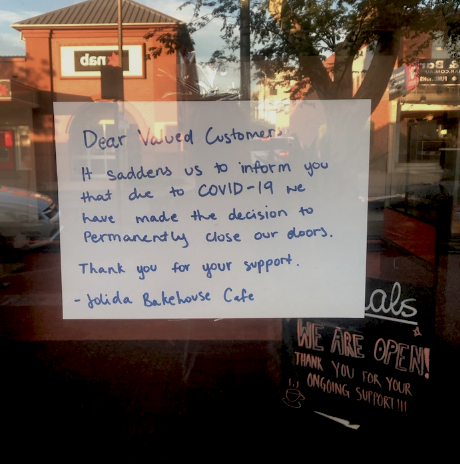 nab
Dear Valued Customer,
It saddens us to inform you
that due to COVID-19 we
have made the decision to
Permanently close our doors.
Thank you for your support.
- Jolida Bakehouse Cafe
als
WE ARE OPEN!
THANK YOU FOR YOUR
ONGOING SUPPORT!!!